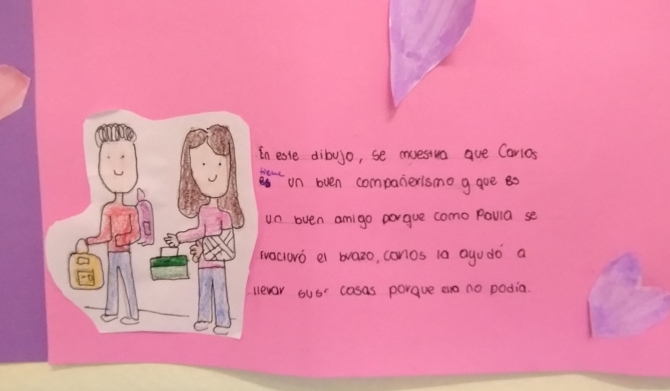 En este dibujo, se muestra que Carlos
tiene
un buen compañerismo y que es
un buen amigo porque como Paula se
fracturó el brazo, Carlos la ayudó a
llevar sus cosas porque ella no podía.